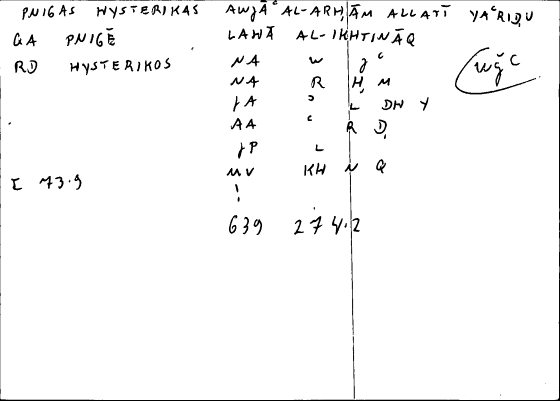 PNIGAS HYSTERIKAS AWJĀʿ AL-ARḤĀM ALLATĪ YAʿRIḌU
GA PNIGĒ LAHĀ AL-IKHTINĀQ
RD HYSTERIKOS NA W J ʿ
wǧʿ
NA R Ḥ M
JA ʾ L DH Y
AA ʿ R Ḍ
JP L
I 73.9 MV KH N Q
639 274.2